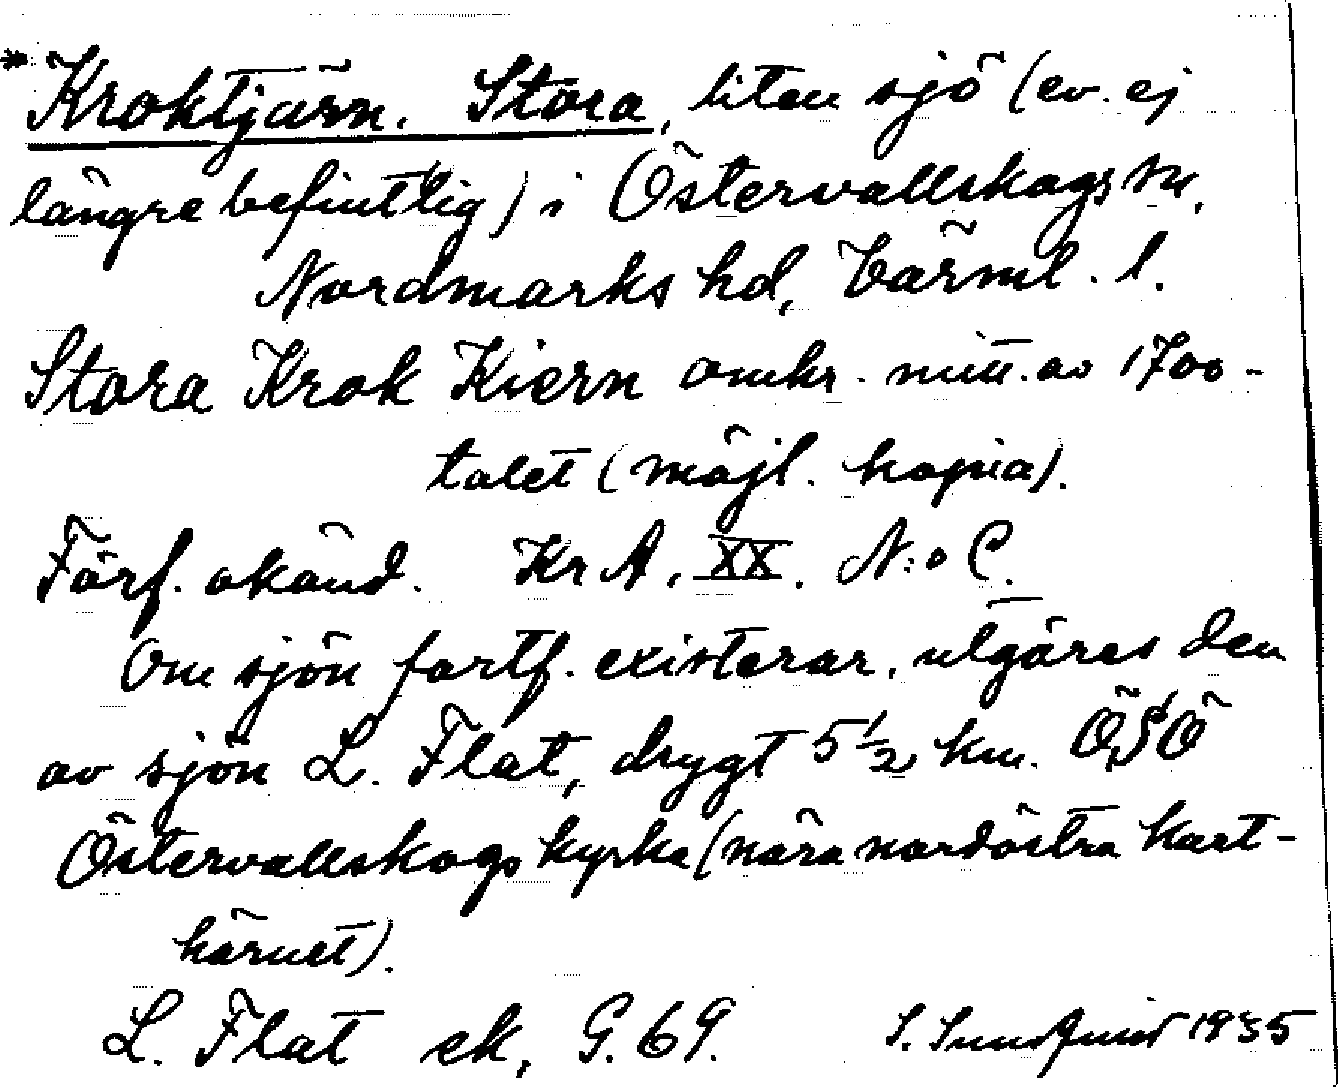 * Kroktjärn, Stora, liten sjö (ev. ej
längre befintlig) i Östervallskogs sn,
Nordmarks hd, Värml. l.
Stora Krok Kiern omkr. mitt. av 1700-
talet (möjl. kopia).
Förf. okänd. Kr A, XX. N:o C.
Om sjön fortf. existerar, utgöres den
av sjön L. Flat, drygt 5 1/2 km. ÖSÖ
Östervallskogs kyrka (nära nordöstra kart-
hörnet).
L. Flat ek, G. 69. S. Sundqvist 1935